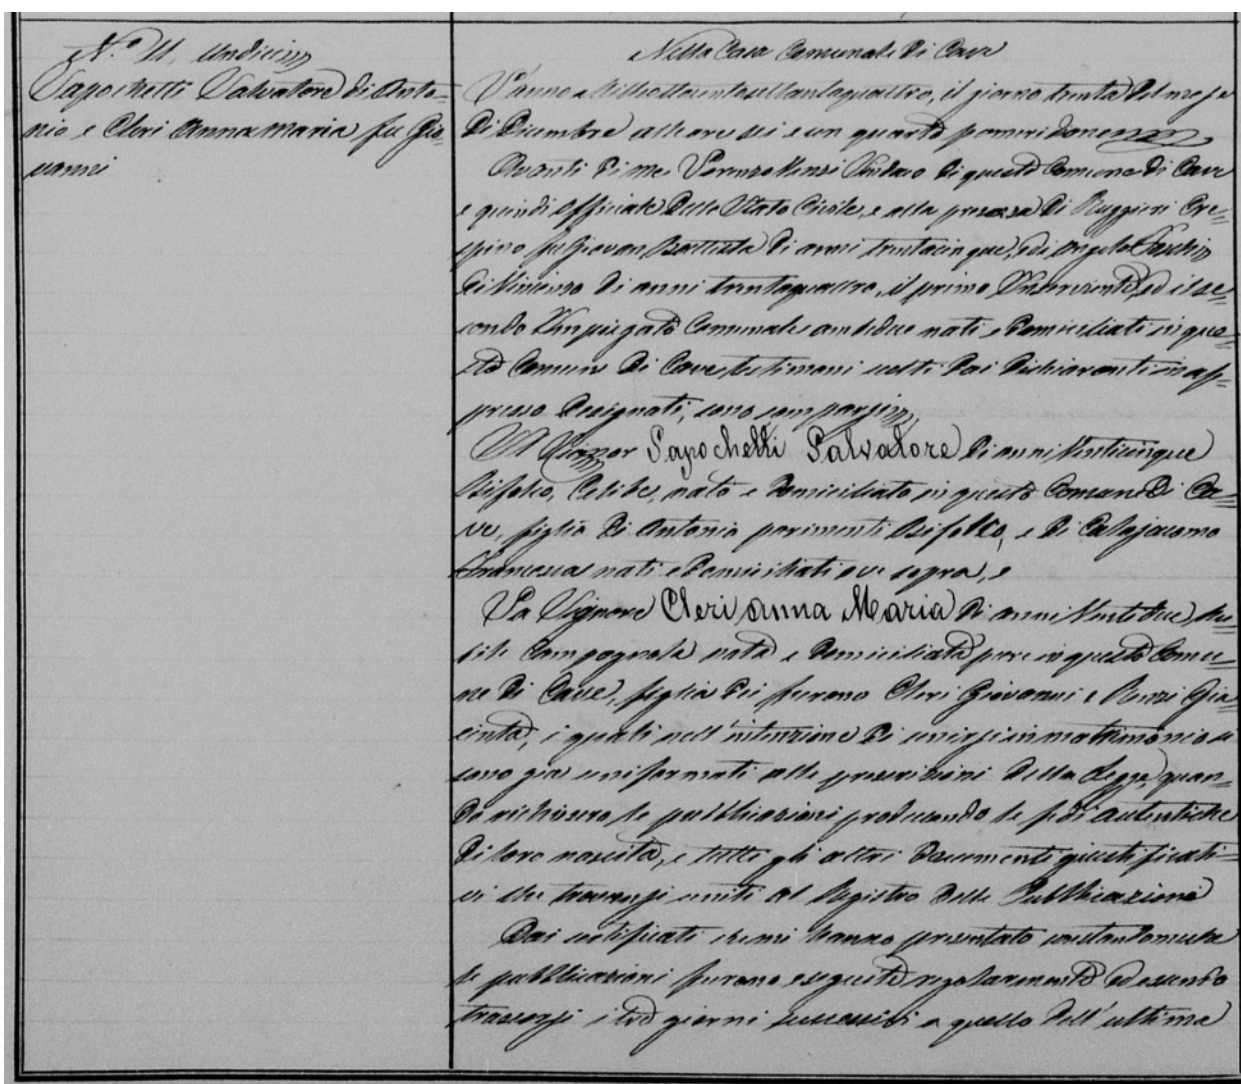 N.º 11. Undici
Sapochetti Salvatore di Anto-
nio e Cleri Anna Maria fu Gio-
vanni
Nella Casa Comunale di Cave
L'anno Milleottocentosettantaquattro, il giorno trenta del mese
di Dicembre alle ore sei e un quarto pomeridiane
Avanti di me Lorenzo Sindaco di questo Comune di Cave
e quindi Officiale dello Stato Civile, e alla presenza di Ruggieri Cre=
spino fu Giovan Battista di anni trentacinque, e di Angelo
di Vincenzo di anni trentaquattro, il primo Inserviente, ed il se=
condo Impiegato Comunale ambidue nati e domiciliati in que=
sto Comune di Cave testimoni scelti dai dichiaranti in ap=
presso designati, sono comparsi
Il Signor Sapochetti Salvatore di anni Venticinque
Bifolco, Celibe, nato e domiciliato in questo Comune di Ca=
ve, figlio di Antonio parimenti Bifolco, e di
Francesca nati e domiciliati ove sopra, e
La Signora Cleri Anna Maria di anni Ventidue, Nu=
bile Campagnola nata e domiciliata pure in questo Comu=
ne di Cave, figlia dei furono Cleri Giovanni e Gia=
cinta, i quali nell'intenzione di unirsi in matrimonio si
sono già uniformati alle prescrizioni della Legge, quan=
do richiesero le pubblicazioni producendo le fedi autentiche
di loro nascita, e tutti gli altri documenti giustificati=
vi che trovansi uniti al Registro delle Pubblicazioni
Dai certificati che mi hanno presentato constandomi che
le pubblicazioni furono eseguite regolarmente ed essendo
trascorsi i tre giorni successivi a quello dell'ultima